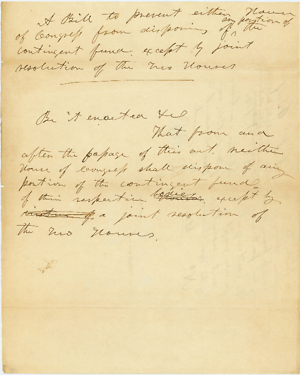 A Bill to prevent either House
any portion of
of Congress from disposing of the
contingent fund except by joint
resolution of the two Houses
Be it enacted &c
That from and
after the passage of this act neither
House of Congress shall dispose of any
portion of the contingent fund
of their respective bodies except by
a joint resolution of
the two Houses.